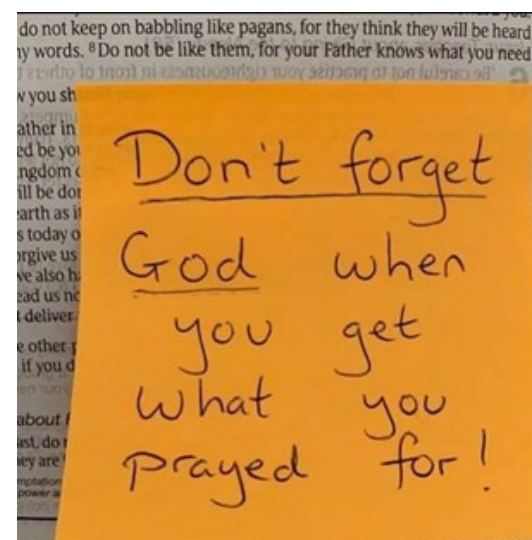 do not keep on babbling like pagans, for they think they will be heard
y words. ⁸Do not be like them, for your Father knows what you need
you sh
ather in
ed be you
ngdom
ill be don
earth as it
s today o
orgive us
we also ha
ead us no
deliver
e other
if you d
about
ast, do
ey are
mptation
power a
Don't forget
God when
you get
what you
prayed for!